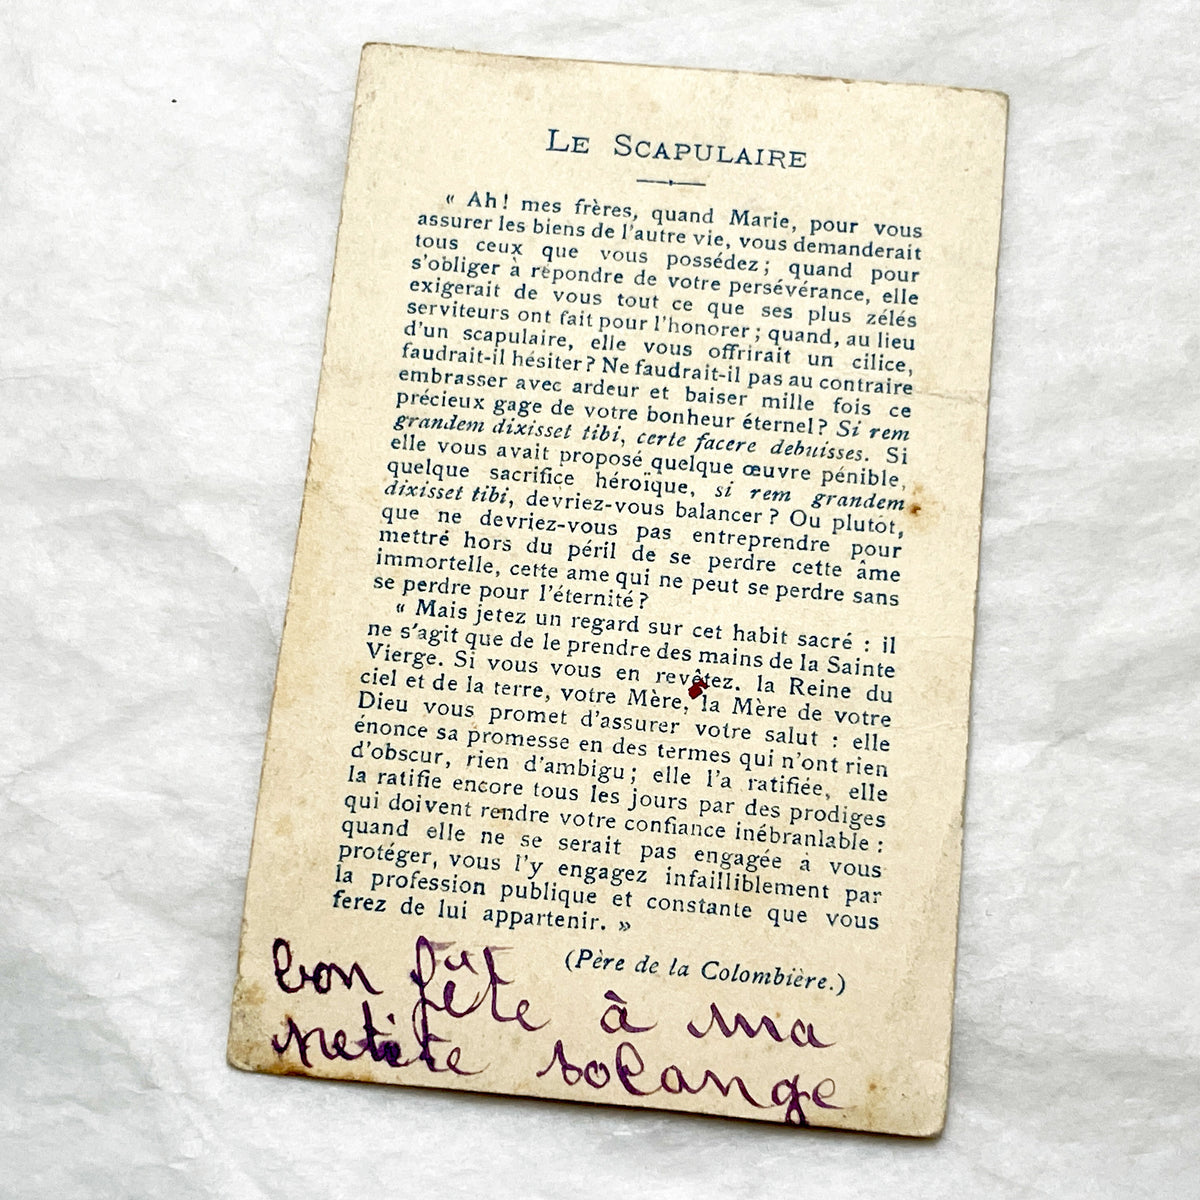 LE SCAPULAIRE
« Ah! mes frères, quand Marie, pour vous
assurer les biens de l'autre vie, vous demanderait
tous ceux que vous possédez; quand pour
s'obliger à répondre de votre persévérance, elle
exigerait de vous tout ce que ses plus zélés
serviteurs ont fait pour l'honorer; quand, au lieu
d'un scapulaire, elle vous offrirait un cilice,
faudrait-il hésiter? Ne faudrait-il pas au contraire
embrasser avec ardeur et baiser mille fois ce
précieux gage de votre bonheur éternel? Si rem
grandem dixisset tibi, certe facere debuisses. Si
elle vous avait proposé quelque œuvre pénible,
quelque sacrifice héroïque, si rem grandem
dixisset tibi, devriez-vous balancer? Ou plutôt,
que ne devriez-vous pas entreprendre pour
mettre hors du péril de se perdre cette âme
immortelle, cette ame qui ne peut se perdre sans
se perdre pour l'éternité?
« Mais jetez un regard sur cet habit sacré : il
ne s'agit que de le prendre des mains de la Sainte
Vierge. Si vous vous en revêtez. la Reine du
ciel et de la terre, votre Mère, la Mère de votre
Dieu vous promet d'assurer votre salut : elle
énonce sa promesse en des termes qui n'ont rien
d'obscur, rien d'ambigu; elle l'a ratifiée, elle
la ratifie encore tous les jours par des prodiges
qui doivent rendre votre confiance inébranlable :
quand elle ne se serait pas engagée à vous
protéger, vous l'y engagez infailliblement par
la profession publique et constante que vous
ferez de lui appartenir. »
(Père de la Colombière.)
bon fête à ma
petite solange